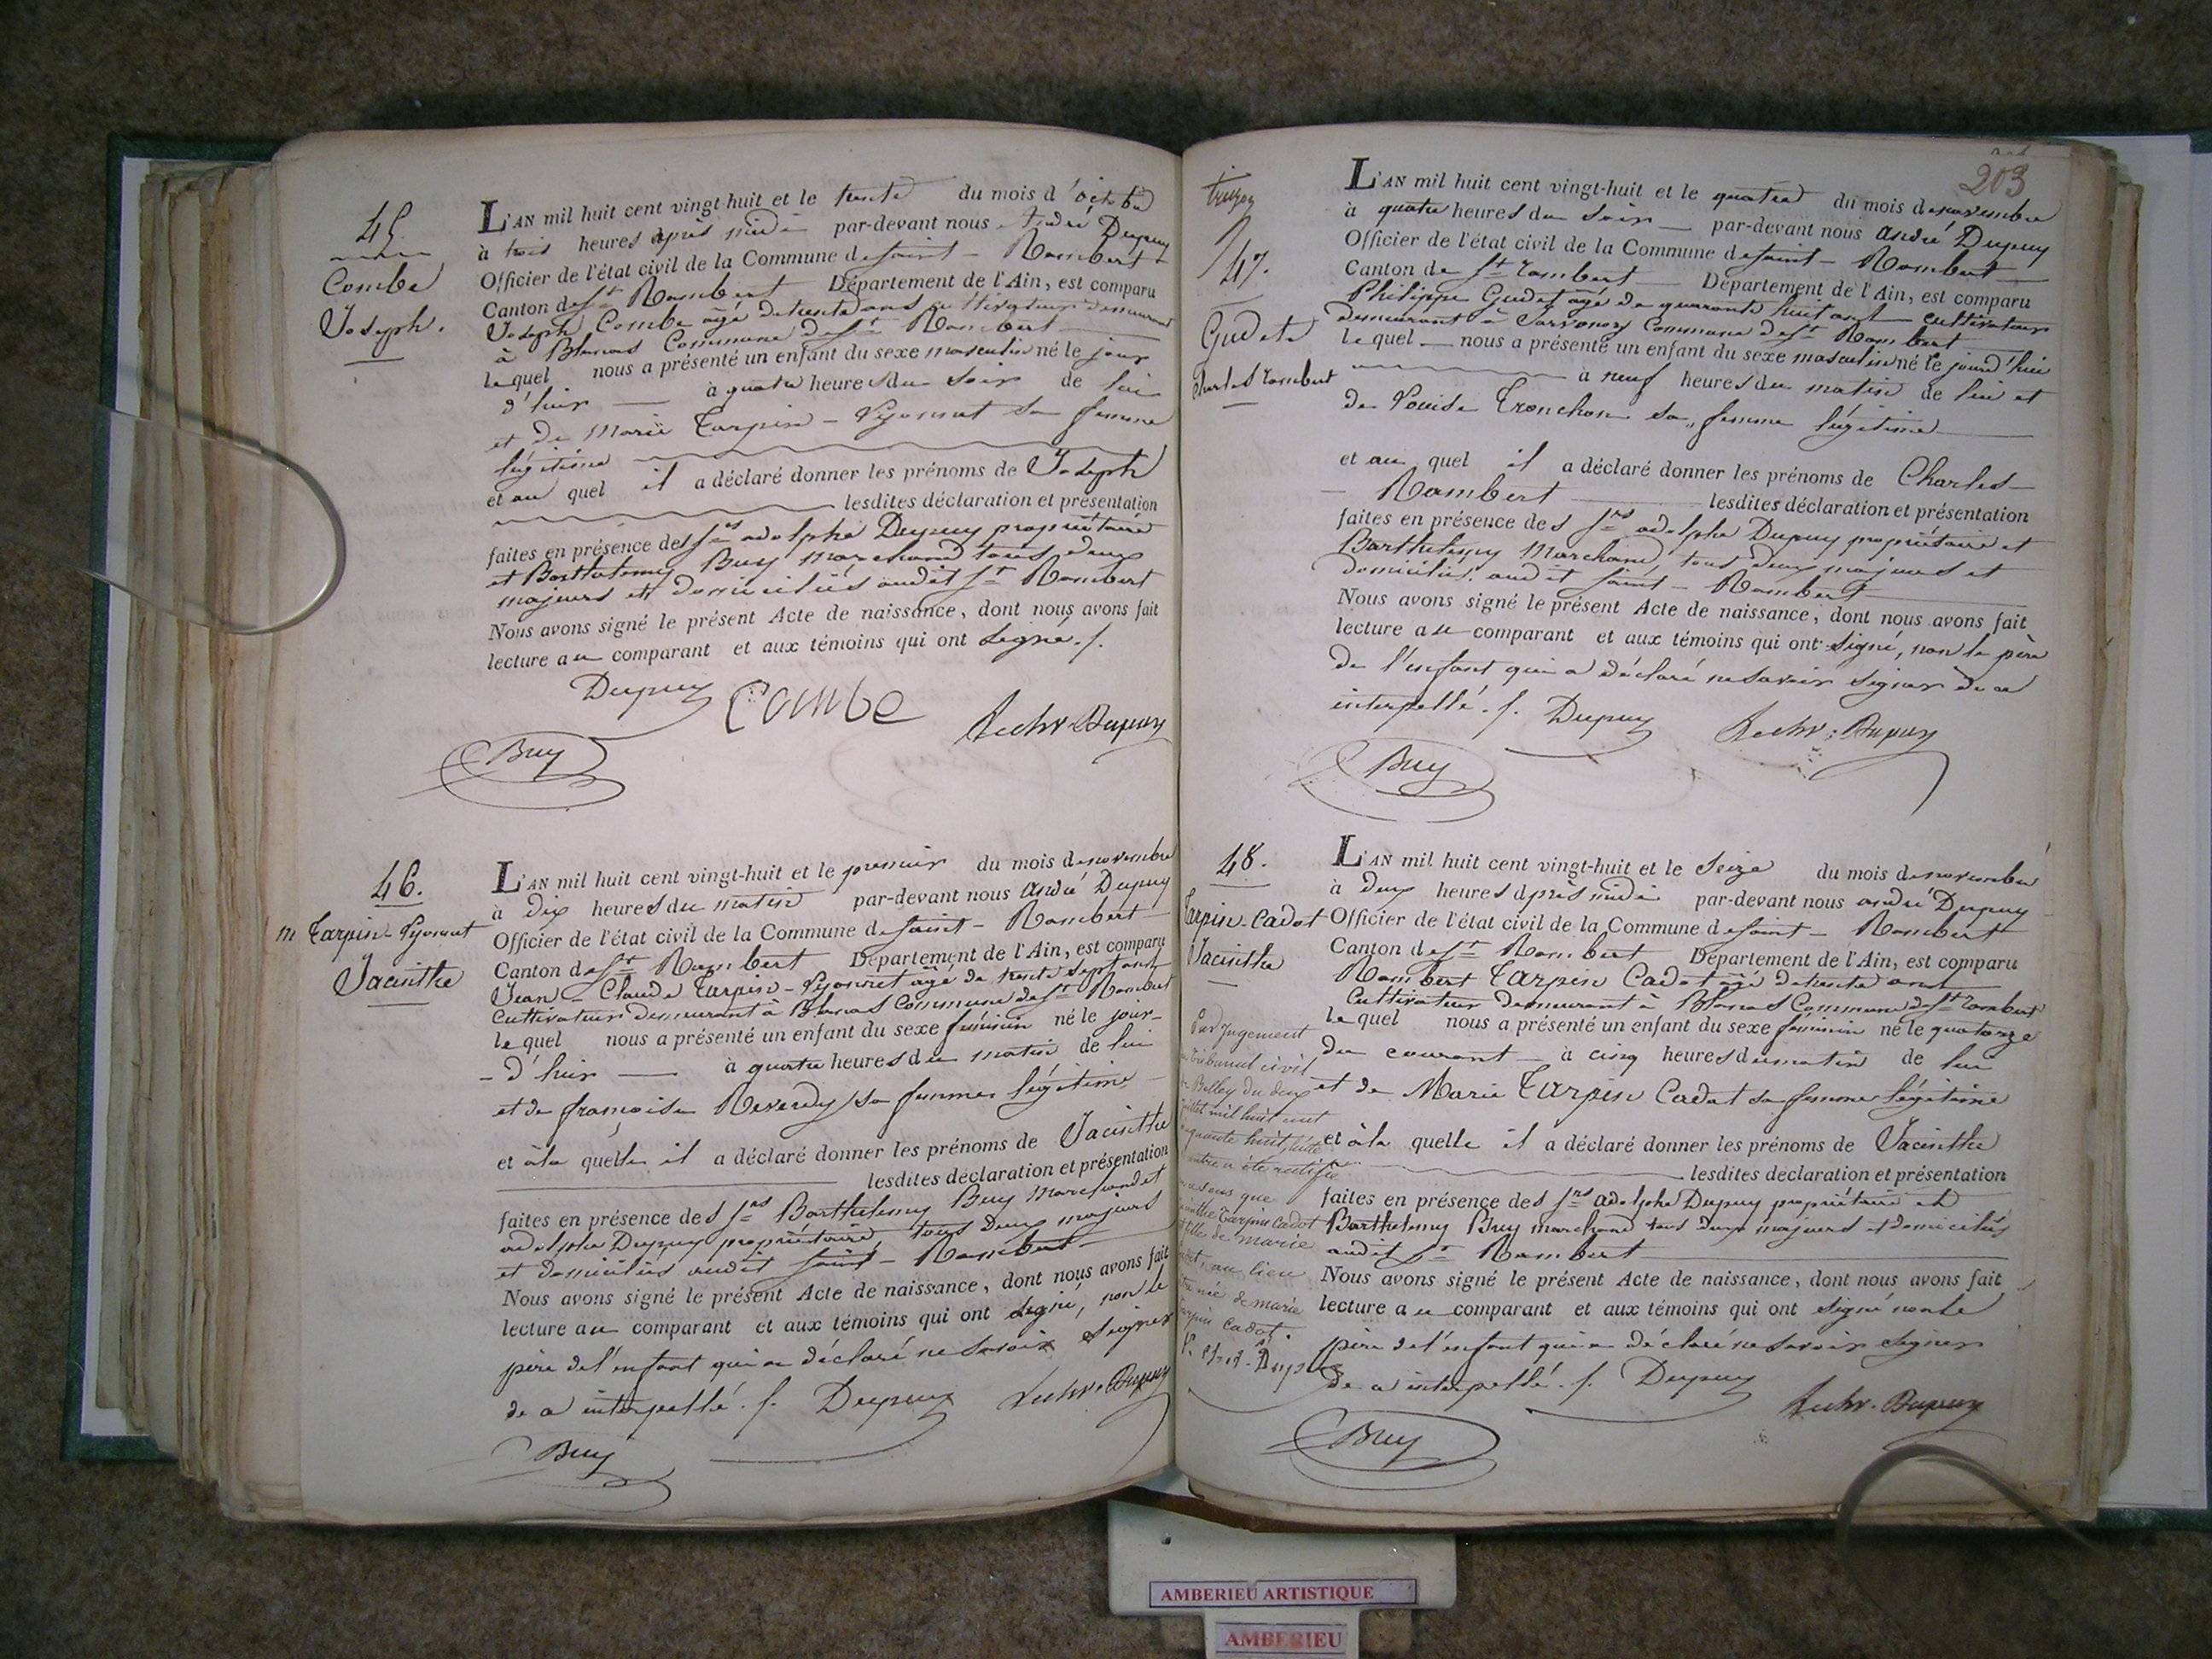 45.
Combe
Joseph.
L'AN mil huit cent vingt-huit et le trente du mois d'octobre
à trois heures après midi par-devant nous André Dupuy
Officier de l'état civil de la Commune de Saint-Rambert
Canton de St Rambert Département de l'Ain, est comparu
Joseph Combe âgé de trente ans cultivateur demeurant
à Blanas Commune de St Rambert
lequel nous a présenté un enfant du sexe masculin né le jour
d'hier à quatre heures du soir de lui
et de Marie Tarpin-Pyonnet sa femme
légitime
et au quel il a déclaré donner les prénoms de Joseph
lesdites déclaration et présentation
faites en présence des Srs adolphe Dupuy propriétaire
et Barthelemy Buy Marchand tous deux
majeurs et domiciliés audit St Rambert
Nous avons signé le présent Acte de naissance, dont nous avons fait
lecture au comparant et aux témoins qui ont signé./.
Dupuy Combe Dupuy
Buy
46.
m Tarpin-Pyonnet
Jacinthe
L'AN mil huit cent vingt-huit et le premier du mois de novembre
à dix heures du matin par-devant nous André Dupuy
Officier de l'état civil de la Commune de Saint-Rambert
Canton de St Rambert Département de l'Ain, est comparu
Jean-Claude Tarpin-Pyonnet âgé de trente sept ans
cultivateur demeurant à Blanas Commune de St Rambert
lequel nous a présenté un enfant du sexe féminin né le jour
d'hier à quatre heures du matin de lui
et de françoise Reverdy sa femme légitime
et à la quelle il a déclaré donner les prénoms de Jacinthe
lesdites déclaration et présentation
faites en présence des Srs Barthelemy Buy Marchand et
adolphe Dupuy propriétaire, tous deux majeurs
et domiciliés audit Saint-Rambert
Nous avons signé le présent Acte de naissance, dont nous avons fait
lecture au comparant et aux témoins qui ont signé, non le
père de l'enfant qui a déclaré ne savoir signer
de a interpellé./. Dupuy Dupuy
Buy
203
47.
Gudet
Charles Rambert
L'AN mil huit cent vingt-huit et le quatre du mois de novembre
à quatre heures du soir par-devant nous André Dupuy
Officier de l'état civil de la Commune de Saint-Rambert
Canton de St Rambert Département de l'Ain, est comparu
Philippe Gudet âgé de quarante huit ans cultivateur
demeurant à Commune de St Rambert
lequel nous a présenté un enfant du sexe masculin né le jourd'hui
à neuf heures du matin de lui et
de Louise Tronchon sa femme légitime
et au quel il a déclaré donner les prénoms de Charles
Rambert lesdites déclaration et présentation
faites en présence des Srs adolphe Dupuy propriétaire et
Barthelemy Marchand, tous deux majeurs et
domiciliés audit Saint-Rambert
Nous avons signé le présent Acte de naissance, dont nous avons fait
lecture au comparant et aux témoins qui ont signé, non le père
de l'enfant qui a déclaré ne savoir signer de a
interpellé./. Dupuy Dupuy
Buy
48.
Tarpin-Cadot
Jacinthe
L'AN mil huit cent vingt-huit et le seize du mois de novembre
à deux heures après midi par-devant nous andré Dupuy
Officier de l'état civil de la Commune de Saint-Rambert
Canton de St Rambert Département de l'Ain, est comparu
Rambert Tarpin Cadot âgé de trente ans
cultivateur demeurant à Blanas Commune de St Rambert
lequel nous a présenté un enfant du sexe féminin né le quatorze
du courant à cinq heures du matin de lui
et de Marie Tarpin Cadot sa femme légitime
et à la quelle il a déclaré donner les prénoms de Jacinthe
lesdites déclaration et présentation
faites en présence des Srs adolphe Dupuy propriétaire et
Barthelemy Buy marchand tous deux majeurs et domiciliés
audit St Rambert
Nous avons signé le présent Acte de naissance, dont nous avons fait
lecture au comparant et aux témoins qui ont signé non le
père de l'enfant qui a déclaré ne savoir signer
de a interpellé./. Dupuy Dupuy
Buy
Par jugement
tribunal civil
Belley du deux
mil huit cent
huit
a été rectifié
sens que
Tarpin Cadot
fille de marie
au lieu
née de marie
Cadot.
AMBERIEU ARTISTIQUE
AMBERIEU